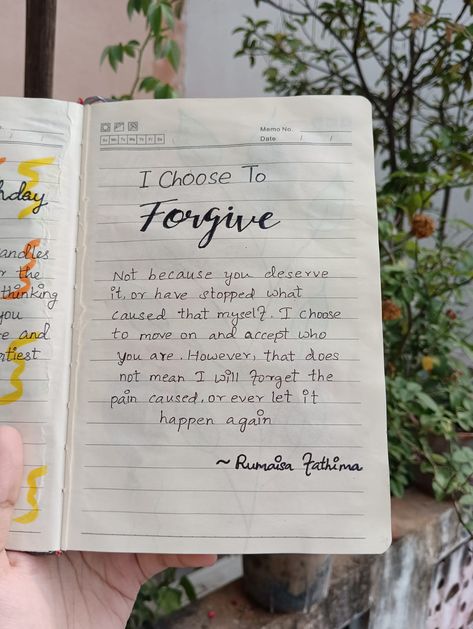 hday
andles
r the
thinking
you
e and
rtiest
Memo No.
Su Mo Tu We Th Fr Sa
Date / /
I Choose To
Forgive
Not because you deserve
it, or have stopped what
caused that myself. I choose
to move on and accept who
you are. However, that does
not mean I will forget the
pain caused, or ever let it
happen again
~ Rumaisa Fathima